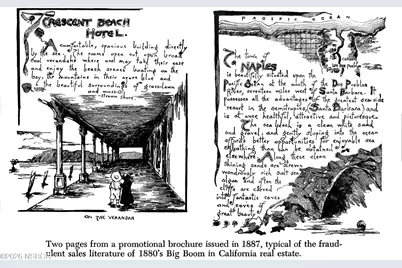 CRESCENT BEACH
HOTEL.
A comfortable, spacious building directly
by the sea. The rooms open out upon broad
cool verandahs where you may take their ease
and enjoy the beach scenes boating on the
bay, the mountains in their azure blue and
the beautiful surroundings of grass-lawn
and
ON THE VERANDAH
PACIFIC OCEAN
The town of
NAPLES
is beautifully situated upon the
Pacific Ocean at the mouth of the Dos Pueblos
River, seventeen miles west of Santa Barbara. It
possesses all the advantages of the greatest sea-side
resort in the
is at once healthful, attractive and picturesque.
The sea beach is a clean white sand
and gravel, and gently sloping into the ocean
affords better opportunities for enjoyable sea
bathing than can be obtained
elsewhere. Along these clean
shining sands are strewn
wondrously rich salt sea
algae and often the
cliffs are carved
into fantastic caves
and coves of
great beauty
Two pages from a promotional brochure issued in 1887, typical of the fraud-
ulent sales literature of 1880's Big Boom in California real estate.